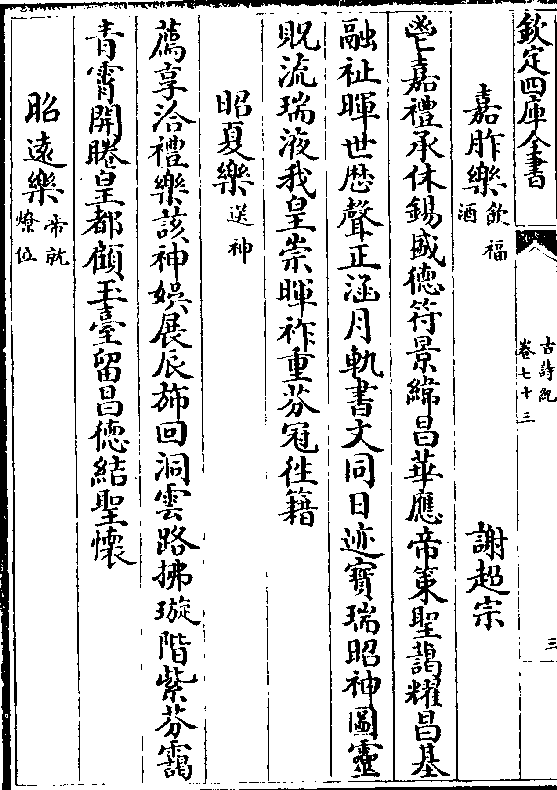 欽定四庫全書
古詩紀
卷七十三
三
嘉胙樂 飲福酒 謝超宗
鬯嘉禮承休錫盛德符景緯昌華應帝策聖藹耀昌基
融祉暉世歴聲正涵月軌書文同日迹寳瑞昭神圖靈
貺流瑞液我皇崇暉祚重芬冠徃籍
昭夏樂 送神
薦享洽禮樂該神娯展辰斾回洞雲路拂璇階紫芬靄
青霄開睠皇都顧玉臺留昌德結聖懷
昭遠樂 帝就燎位